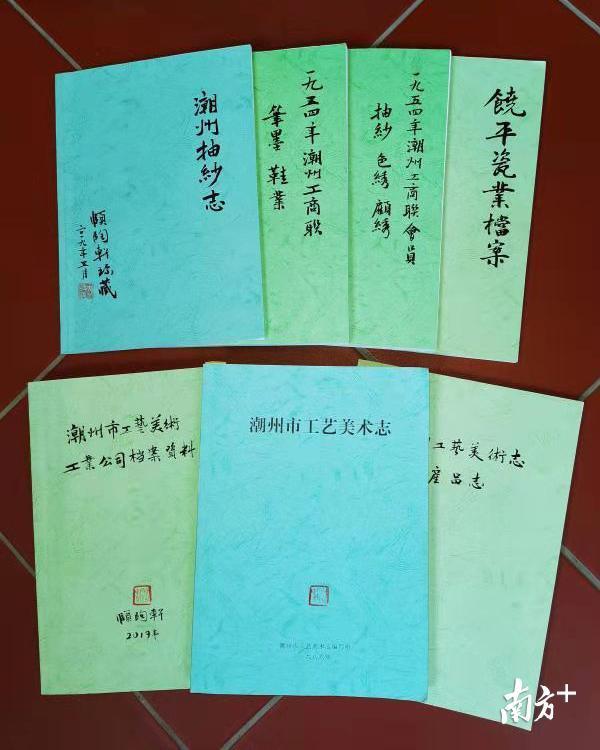 潮州抽紗志
順陶軒珍藏
二〇一九年五月
一九五四年潮州工商联
筆墨 鞋業
一九五四年潮州工商联會員
抽紗 色綉 顧綉
饒平瓷業檔案
潮州市工藝美術
工業公司档案資料
順陶軒
2019年
潮州市工艺美术志
工藝美術志
產品志
南方+